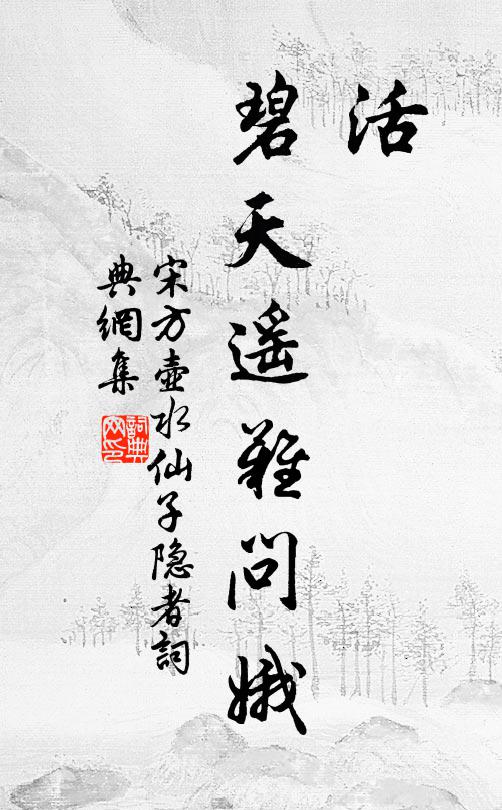 活
碧天遥難問娥
宋方壶水仙子隐者詞
典網集
詞典網印